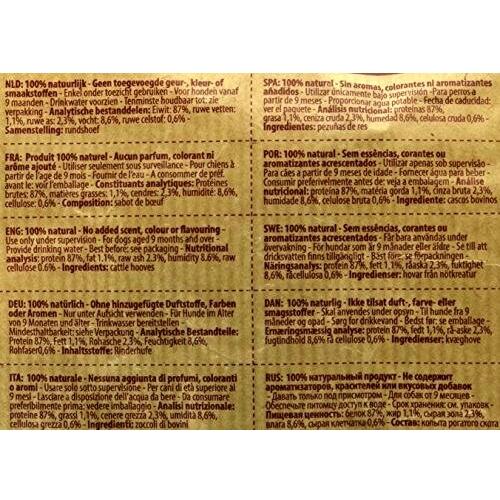 NLD: 100% natuurlijk - Geen toegevoegde geur-, kleur- of
smaakstoffen - Enkel onder toezicht gebruiken - Voor honden vanaf
9 maanden - Drinkwater voorzien - Tenminste houdbaar tot: zie
verpakking - Analytische bestanddelen: Eiwit: 87%, ruwe vetten:
1,1%, ruwe as: 2,3%, vocht: 8,6%, ruwe celstof: 0,6% -
Samenstelling: rundshoef
FRA: Produit 100% naturel - Aucun parfum, colorant ni
arôme ajouté - Utiliser seulement sous surveillance - Pour chiens à
partir de l'age de 9 mois - Fournir de l'eau - A consommer de préf.
avant le: voir l'emballage - Constituants analytiques: Protéines
brutes: 87%, matières grasses 1,1%, cendres: 2.3%, humidité: 8,6%,
cellulose: 0,6% - Composition: sabot de bœuf
ENG: 100% natural - No added scent, colour or flavouring -
Use only under supervision - For dogs aged 9 months and over -
Provide drinking water - Best before: see packaging - Nutritional
analysis: protein 87%, fat 1.1%, raw ash 2.3%, humidity 8.6%, raw
cellulose 0.6% - Ingredients: cattle hooves
DEU: 100% natürlich - Ohne hinzugefügte Duftstoffe, Farben
oder Aromen - Nur unter Aufsicht verwenden - Für Hunde im Alter
von 9 Monaten und älter - Trinkwasser bereitstellen -
Mindesthaltbarkeit: siehe Verpackung - Analytische Bestandteile:
Protein 87%, Fett 1,1%, Rohasche 2,3%, Feuchtigkeit 8,6%,
Rohfaser0,6% - Inhaltsstoffe: Rinderhufe
ITA: 100% naturale - Nessuna aggiunta di profumi, coloranti
o aromi - Usare solo sotto supervisione - Per cani di età superiore ai
9 mesi - Lasciare a disposizione dell'acqua da bere - Da consumare
preferibilmente prima: vedere imballaggio - Analisi nutrizionale:
proteine 87%, grassi 1,1%, cenere grezza 2,3%, umidità 8,6%,
cellulosa grezza 0,6% - Ingredienti: zoccoli di bovini
SPA: 100% natural - Sin aromas, colorantes ni aromatizantes
añadidos - Utilizar únicamente bajo supervisión - Para perros a
partir de 9 meses - Proporcionar agua potable - Fecha de caducidad:
ver el paquete - Análisis nutricional: proteínas 87%,
grasa 1,1%, ceniza cruda 2,3%, humedad 8,6%, celulosa cruda 0,6% -
Ingredientes: pezuñas de res
POR: 100% natural - Sem essências, corantes ou
aromatizantes acrescentados - Utilizar apenas sob supervisão -
Para cães a partir de 9 meses de idade - Fornecer água para beber -
Consumir preferivelmente antes de: veja a embalagem - Análise
nutricional: proteína 87%, matéria gorda 1,1%, cinza bruta 2,3%,
humidade 8,6%, celulose bruta 0,6% - Ingredientes: cascos bovinos
SWE: 100% natural - Sem essências, corantes ou
aromatizantes acrescentados - Får bara användas under
övervakning - För hundar som är 9 månader eller äldre - Se till att
dricksvatten finns tillgängligt - Bäst före: se förpackningen -
Näringsanalys: protein 87%, fett 1,1%, råaska 2,3%, fuktighet
8,6%, råcellulosa 0,6% - Ingredienser: hovar från nötkreatur
DAN: 100% naturlig - Ikke tilsat duft-, farve- eller
smagsstoffer - Skal anvendes under opsyn - Til hunde fra 9
måneder og opad - Sørg for drikkevand - Bedst før: se emballage -
Ernæringsmæssig analyse: protein 87%, fedt 1,1%, rå-aske 2,3%,
fugtindhold 8,6% rå cellulose 0,6% - Ingredienser: kvæghove
RUS: 100% натуральный продукт - Не содержит
ароматизаторов, красителей или вкусовых добавок
- Давать только под присмотром - Для собак от 9 месяцев -
Обеспечьте питьевой доступ к воде - Срок хранения: см. упаковк -
Пищевая ценность: белок 87%, жир 1,1%, сырая зола 2,3%,
влага 8,6%, сырая клетчатка 0,6% - Состав: копыта рогатого скота